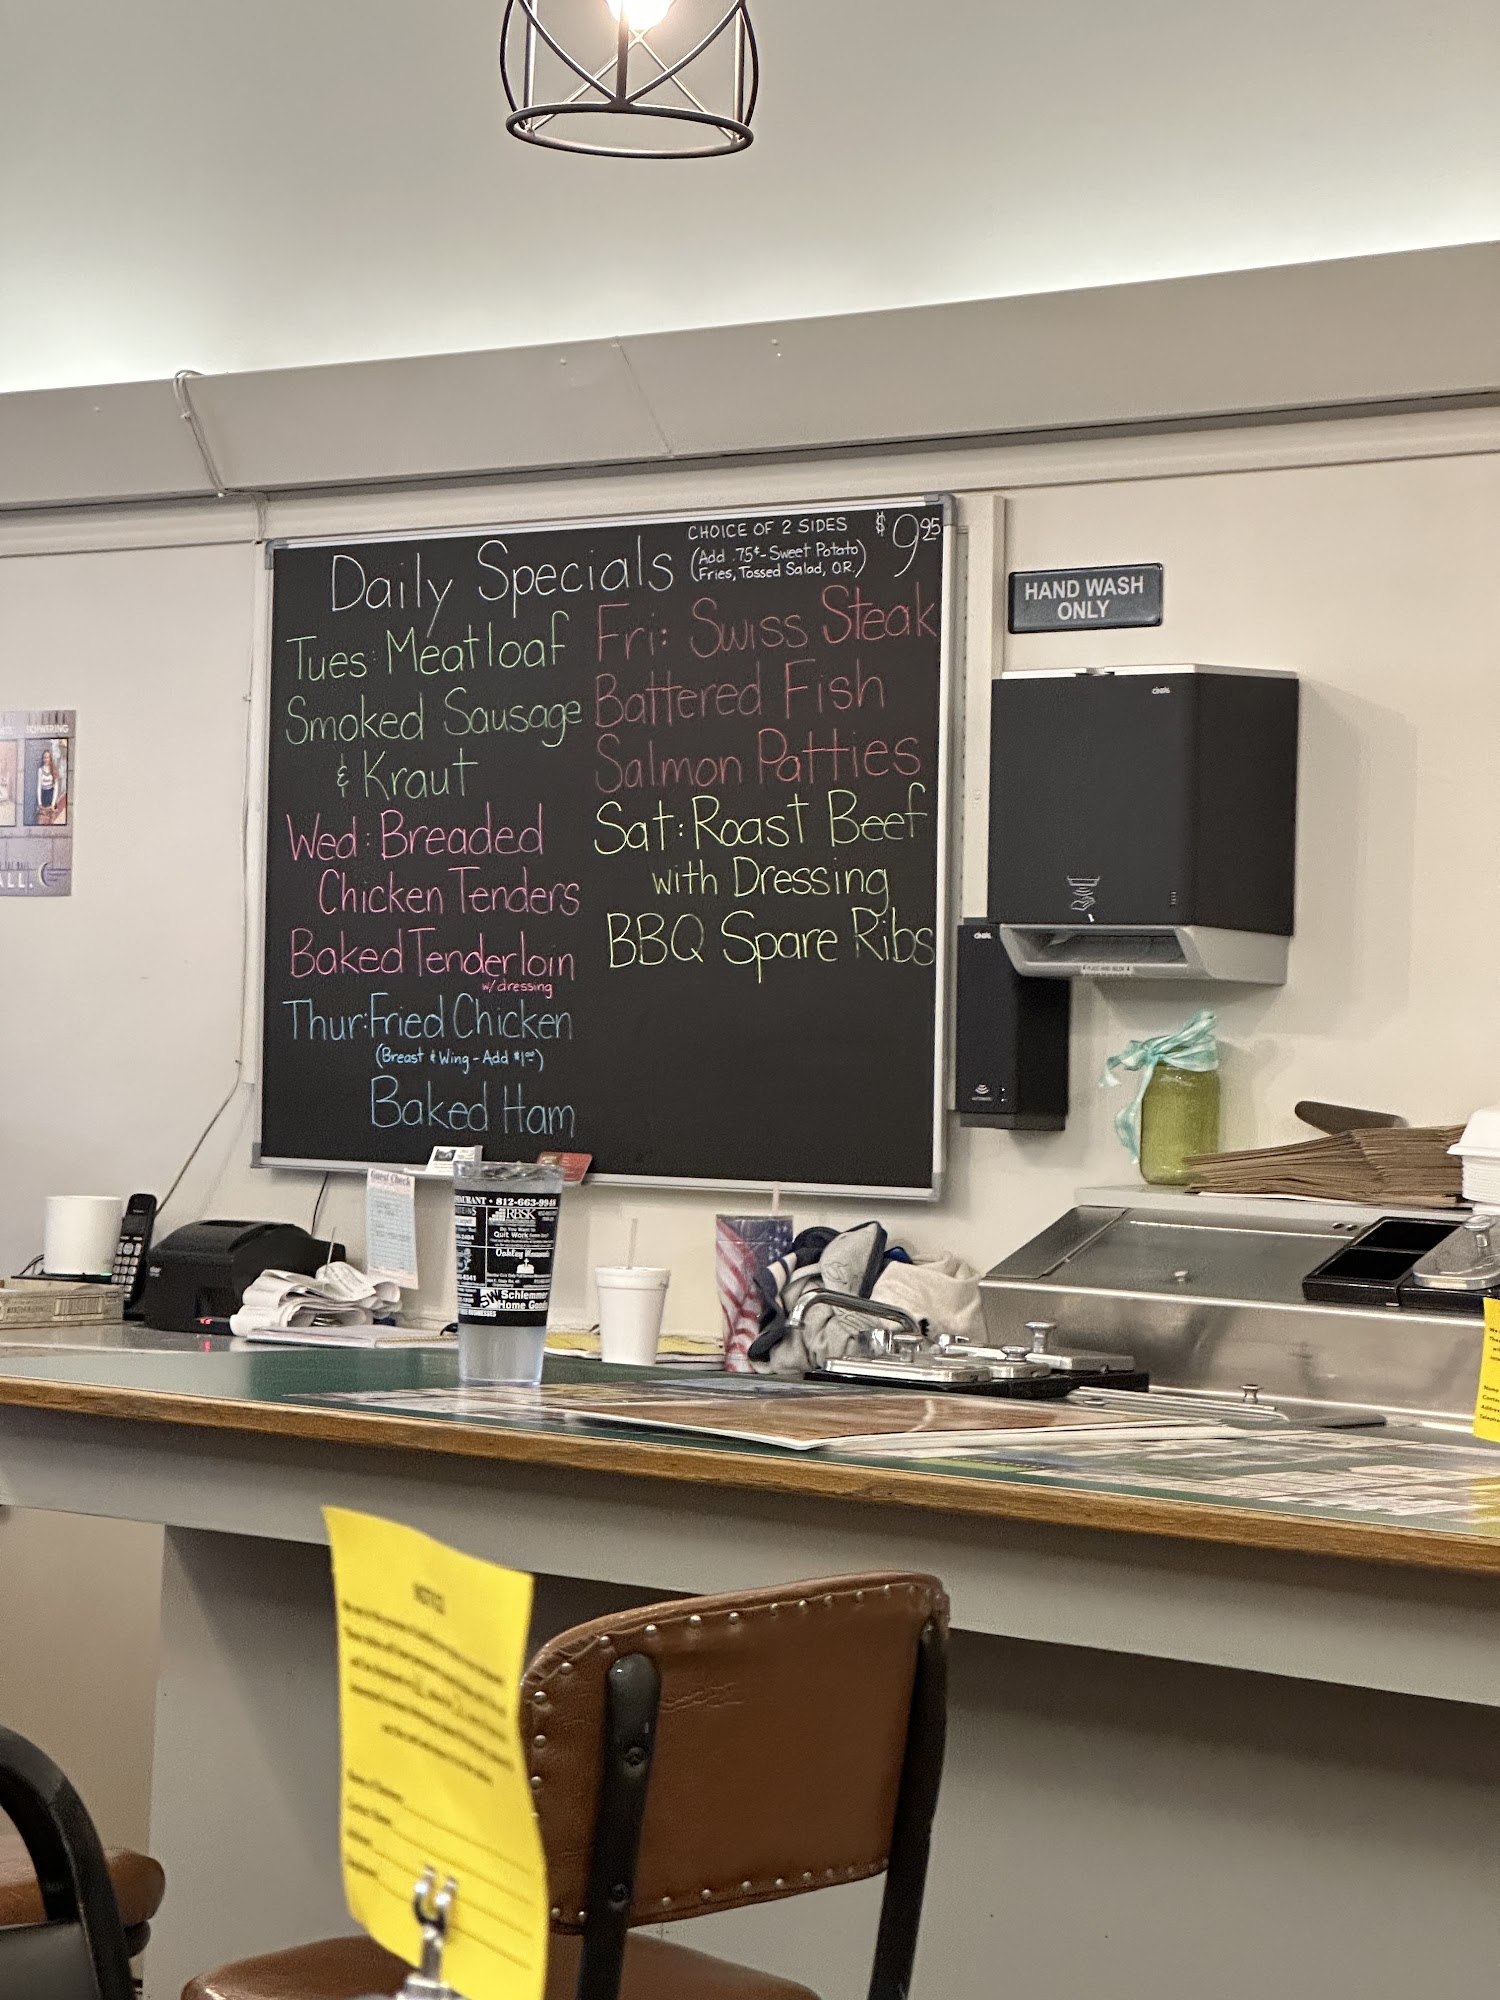 Daily Specials
CHOICE OF 2 SIDES
(Add .75¢-Sweet Potato)
(Fries, Tossed Salad, O.R.)
$9.95
Tues: Meatloaf
Smoked Sausage
& Kraut
Wed: Breaded
Chicken Tenders
Baked Tenderloin
w/ dressing
Thur: Fried Chicken
(Breast & Wing - Add $1.00)
Baked Ham
Fri: Swiss Steak
Battered Fish
Salmon Patties
Sat: Roast Beef
with Dressing
BBQ Spare Ribs
HAND WASH
ONLY
ALL.
Guest Check
812-663-9948
RBSK
Quit Work
Schlemmer
Home Goods
NOTICE